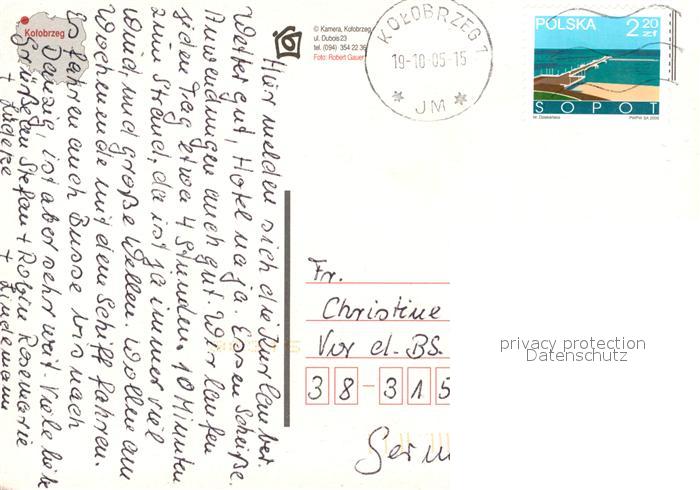 Kołobrzeg
© Kamera, Kołobrzeg
ul. Dubois 23
tel. (094) 354 22 36
Foto: Robert Gauer
KOŁOBRZEG 1
19-10-05-15
JM
POLSKA 2 20 zł
SOPOT
PWPW SA 2005
Hier melden sich die Durlauber.
Wetter gut, Hotel na ja. Essen Scheiße.
Anwendungen auch gut. Wir laufen
jeden Tag etwa 4 Stunden. 10 Minuten
zum Strand, da ist ja immer viel
Wind, und große Wellen. Wollen am
Wochenende mit dem Schiff fahren.
Es fahren auch Busse bis nach
Danzig, ist aber sehr weit. Viele liebe
Grüße an Stefan + Robin Rosemarie
+ + Lindemann
Fr.
Christine
Vor d. BS.
38-315
Germ
privacy protection
Datenschutz